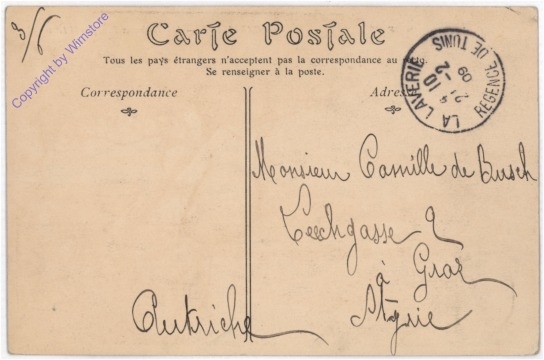 3/6
Copyright by Wimstore
Carte Postale
Tous les pays étrangers n'acceptent pas la correspondance au
Se renseigner à la poste.
Correspondance
LA LAVERIE
RÉGENCE DE TUNIS
21
10 - 2
09
Monsieur Camille de Busch
Graz
à
Autriche